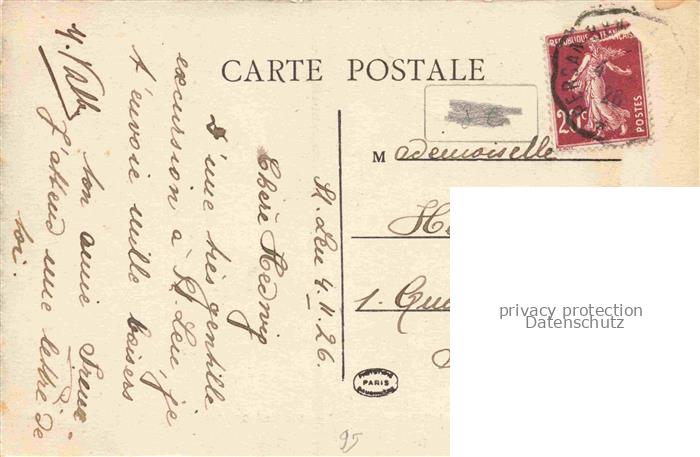 CARTE POSTALE
REPUBLIQUE FRANÇAISE
20c
POSTES
St. Leu 4.11.26.
Chère Hedwig
D'une très gentille
excursion à St. Leu, je
t'envoie mille baisers
ton amie
J'attend une lettre de
toi.
Mademoiselle
He
1. Que
PARIS
95
privacy protection
Datenschutz